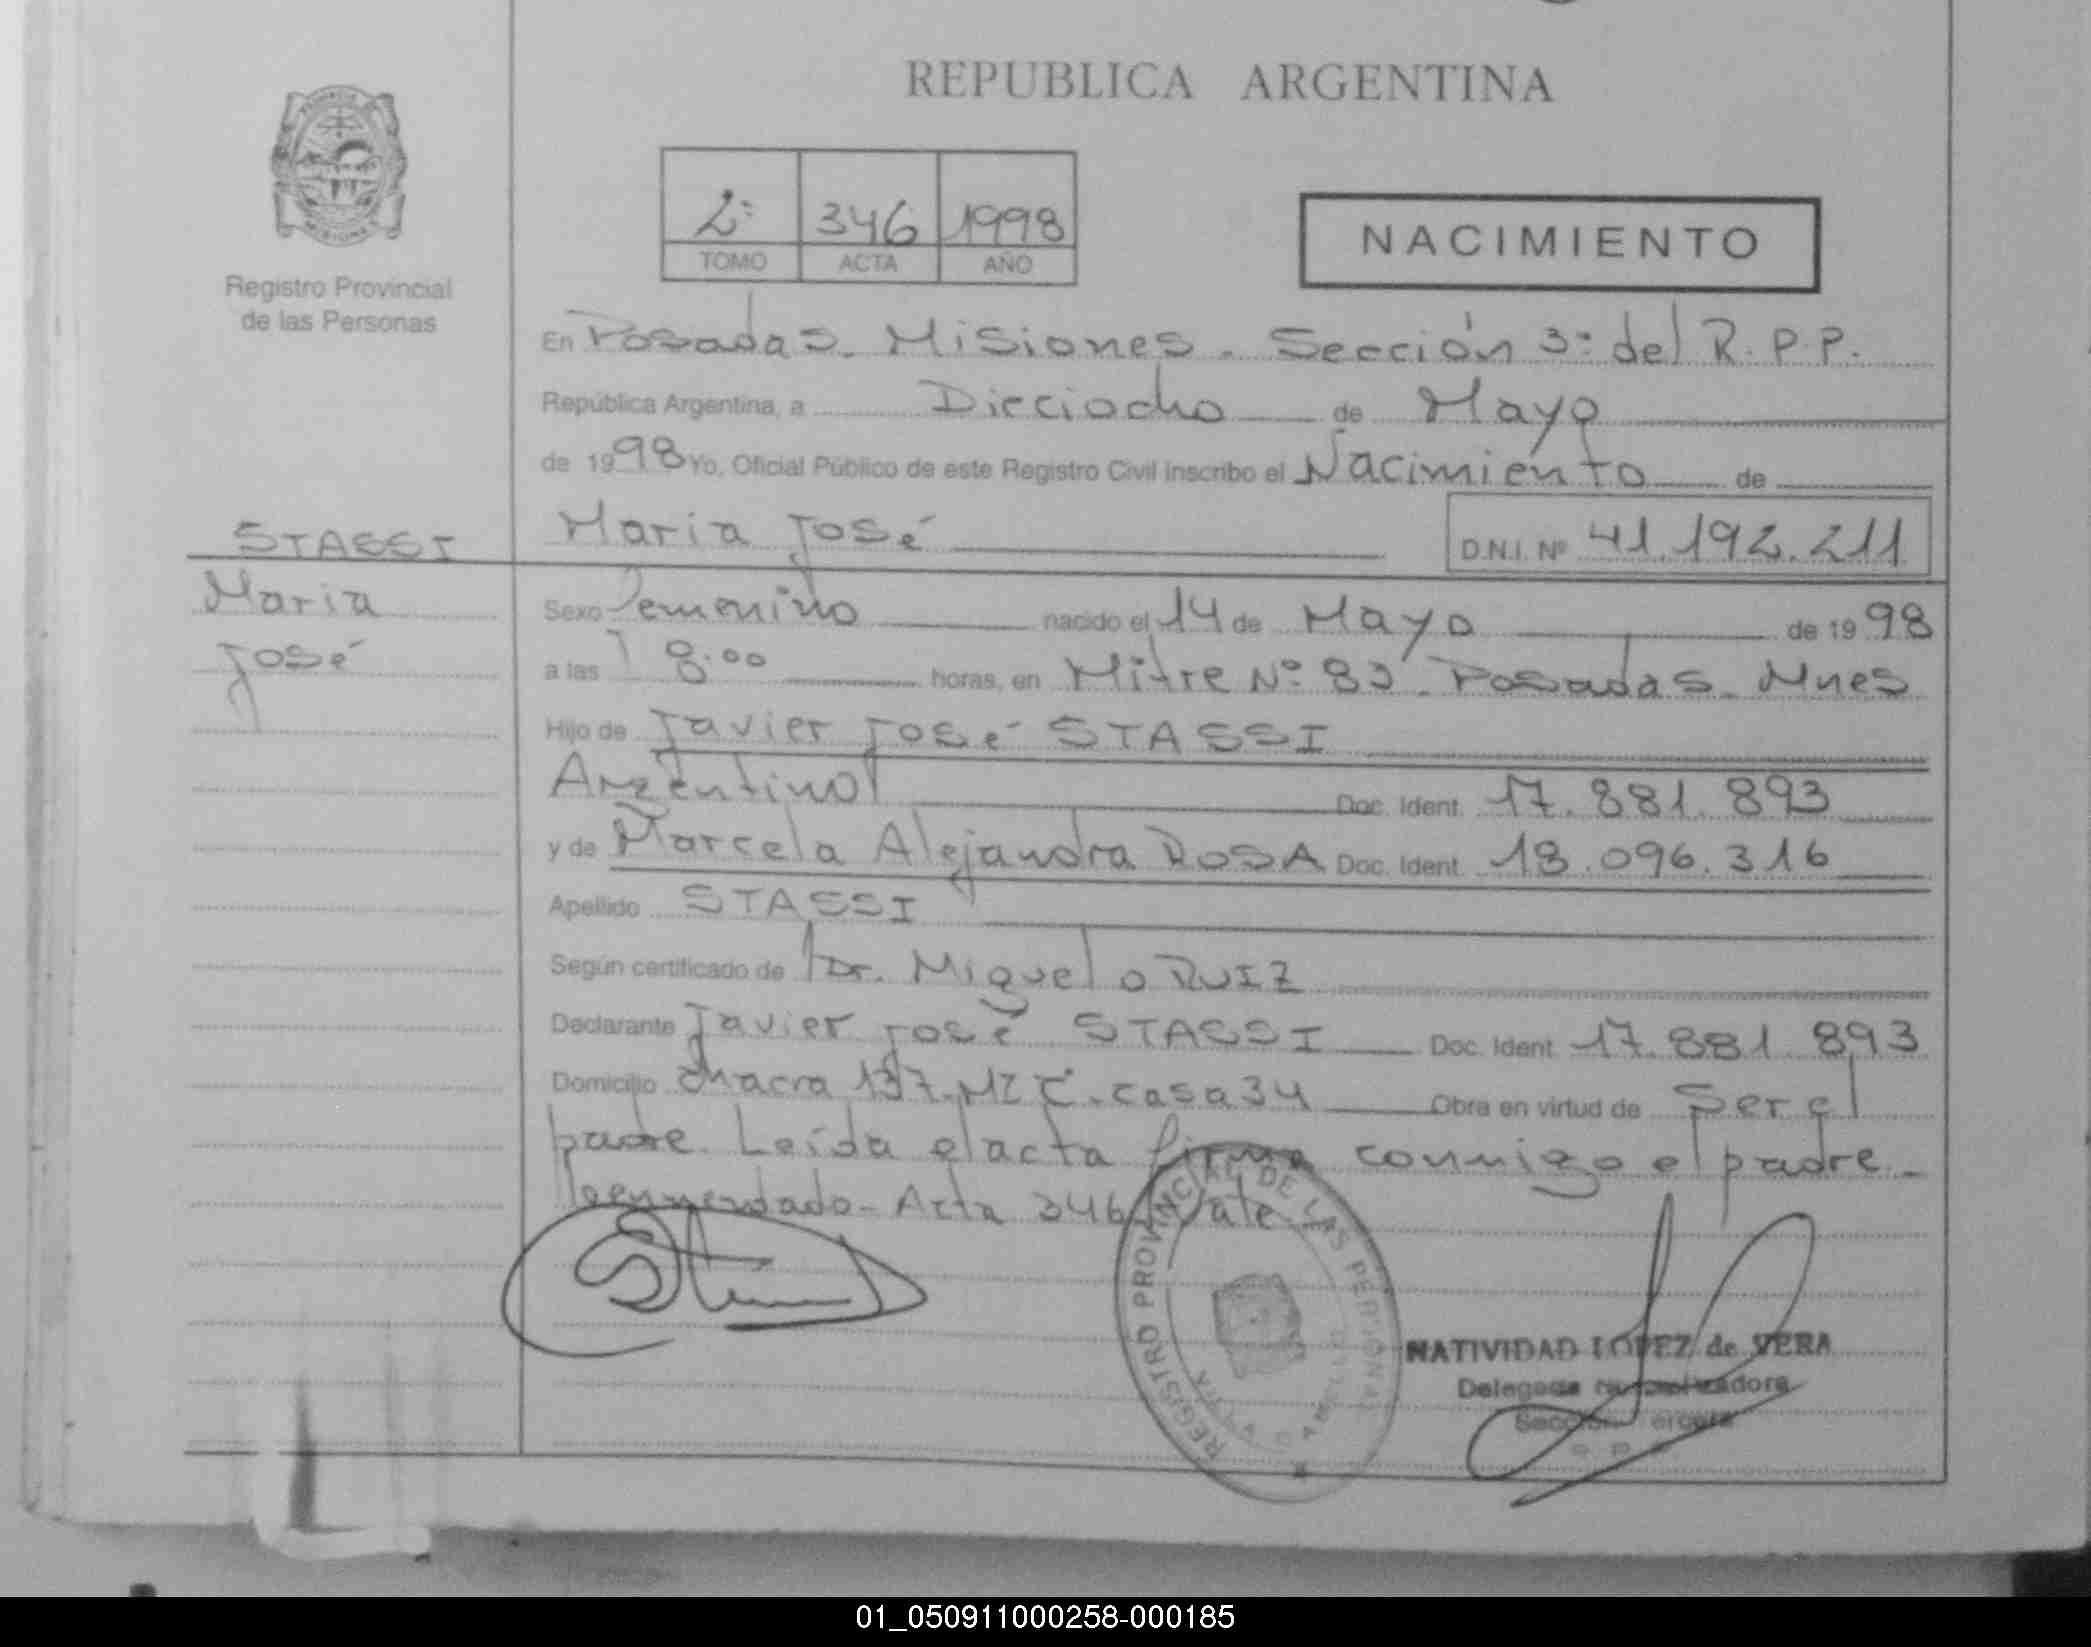 REPUBLICA ARGENTINA
Registro Provincial
de las Personas
2º 346 1998
TOMO ACTA AÑO
NACIMIENTO
En Posadas. Misiones. Sección 3º del R.P.P.
República Argentina, a Dieciocho de Mayo
de 1998 Yo, Oficial Público de este Registro Civil inscribo el Nacimiento de
STASSI
María José D.N.I. Nº 41.192.211
María
José
Sexo Femenino nacido el 14 de Mayo de 1998
a las 8:00 horas, en Mitre Nº 82. Posadas. Mnes
Hijo de Javier José STASSI
Argentino Doc. Ident. 17.881.893
y de Marcela Alejandra ROSA Doc. Ident. 18.096.316
Apellido STASSI
Según certificado de Dr. Miguel O RUIZ
Declarante Javier José STASSI Doc. Ident 17.881.893
Domicilio Chacra 137. MZ C. casa 34 Obra en virtud de Ser el
padre. Leída el acta firma conmigo el padre.
Acta 346 Vale
REGISTRO PROVINCIAL DE LAS PERSONAS
NATIVIDAD LOPEZ de VERA
Delegada
Sección Tercera
01_050911000258-000185